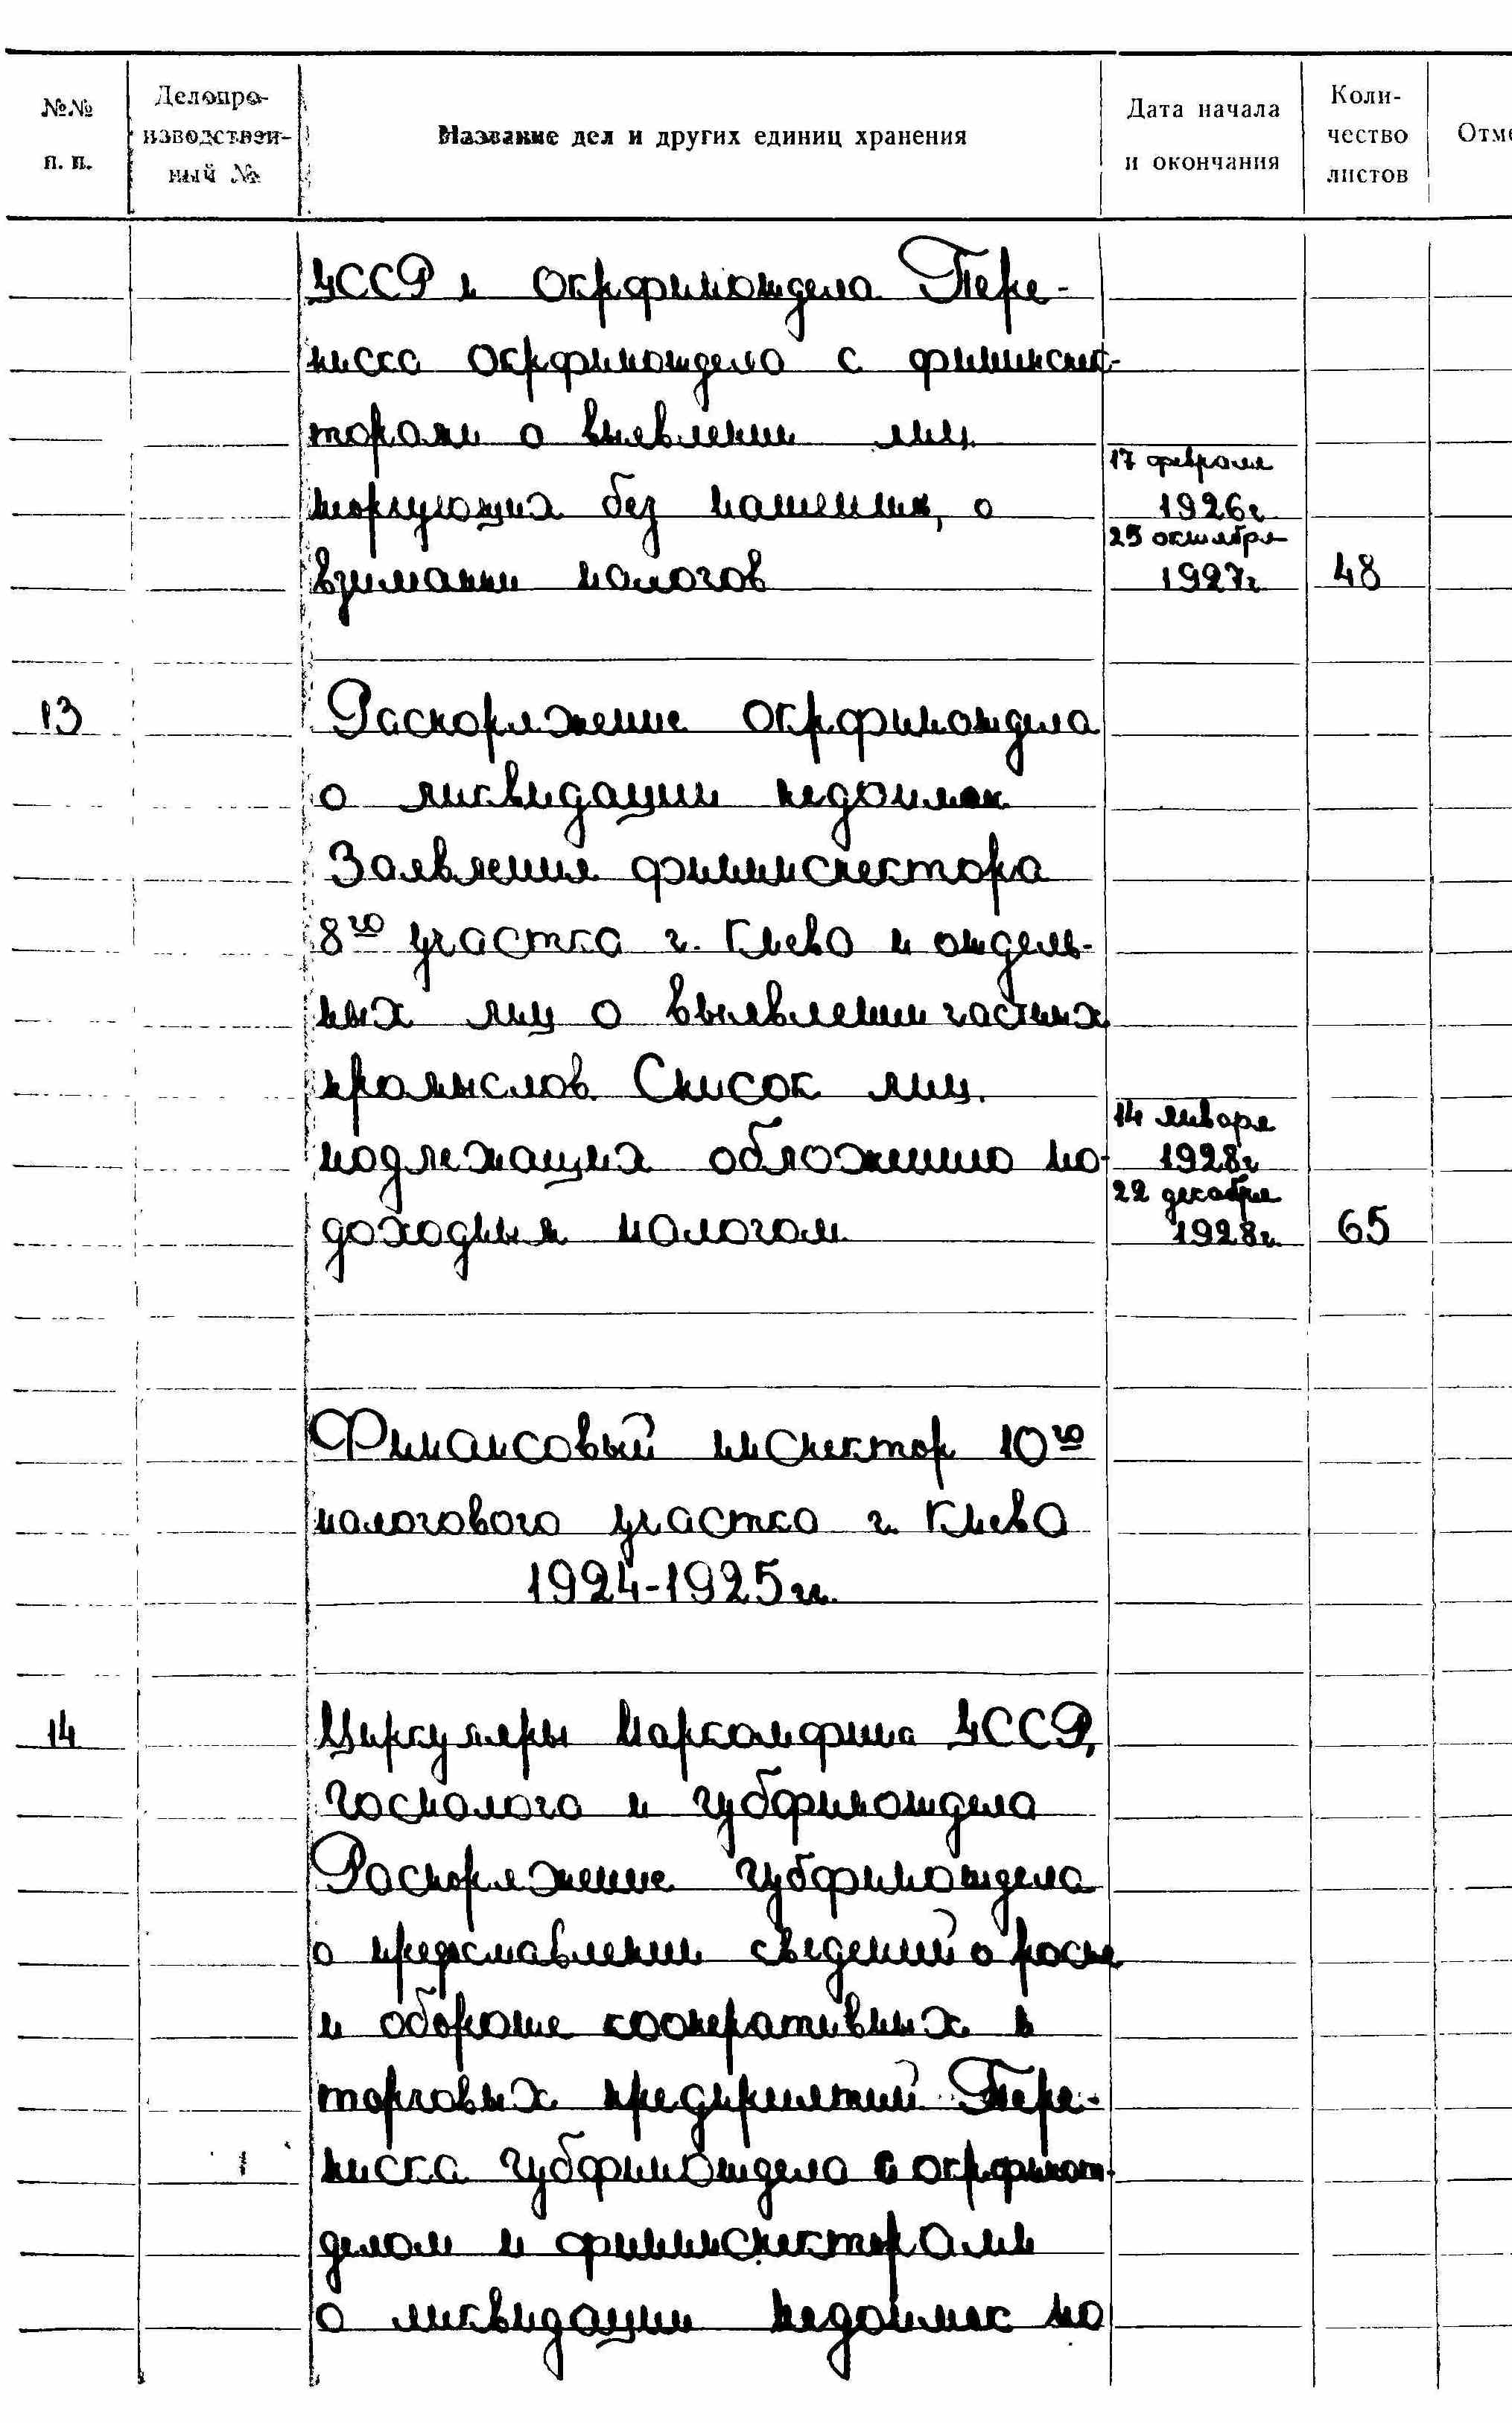 №№ п. п.
Делопро-
изводствен-
ный №
Название дел и других единиц хранения
Дата начала
и окончания
Коли-
чество
листов
Отме
УССР и Окрфинотдела Пере-
писка Окрфинотдела с фининспек-
торами о выявлении лиц
торгующих без патентов, о
взимании налогов
17 февраля
1926г
25 октября
1927г
48
13
Распоряжение Окрфинотдела
о ликвидации недоимок
Заявления фининспектора
8го участка г. Киева и отдель-
ных лиц о выявлении частных
промыслов Список лиц
подлежащих обложению по-
доходным налогом
14 января
1928г
22 декабря
1928г.
65
Финансовый инспектор 10го
налогового участка г. Киева
1924-1925гг.
14
Циркуляры Наркомфина УССР,
Госналога и губфинотдела
Распоряжение губфинотдела
о предоставлении сведений о росте
и обороте кооперативных и
торговых предприятий Пере-
писка губфинотдела с окрфинот-
делом и фининспекторами
о ликвидации недоимок по